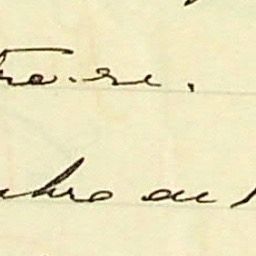 tra-se.
mbro de 1